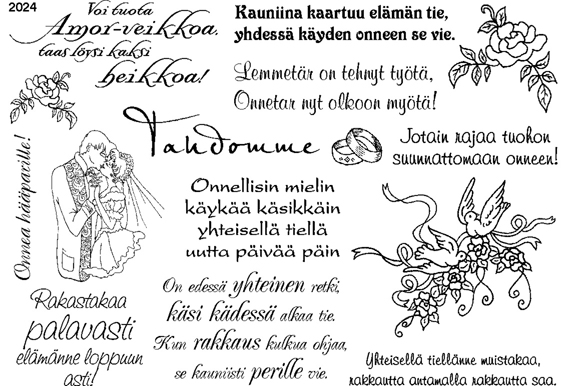 2024
Voi tuota
Amor-veikkoa,
taas löysi kaksi
heikkoa!
Kauniina kaartuu elämän tie,
yhdessä käyden onneen se vie.
Lemmetär on tehnyt työtä,
Onnetar nyt olkoon myötä!
Tahdomme
Jotain rajaa tuohon
suunnattomaan onneen!
Onnea hääparille!
Onnellisin mielin
käykää käsikkäin
yhteisellä tiellä
uutta päivää päin
On edessä yhteinen retki,
käsi kädessä alkaa tie.
Kun rakkaus kulkua ohjaa,
se kauniisti perille vie.
Rakastakaa
palavasti
elämänne loppuun
asti!
Yhteisellä tiellänne muistakaa,
rakkautta antamalla rakkautta saa.